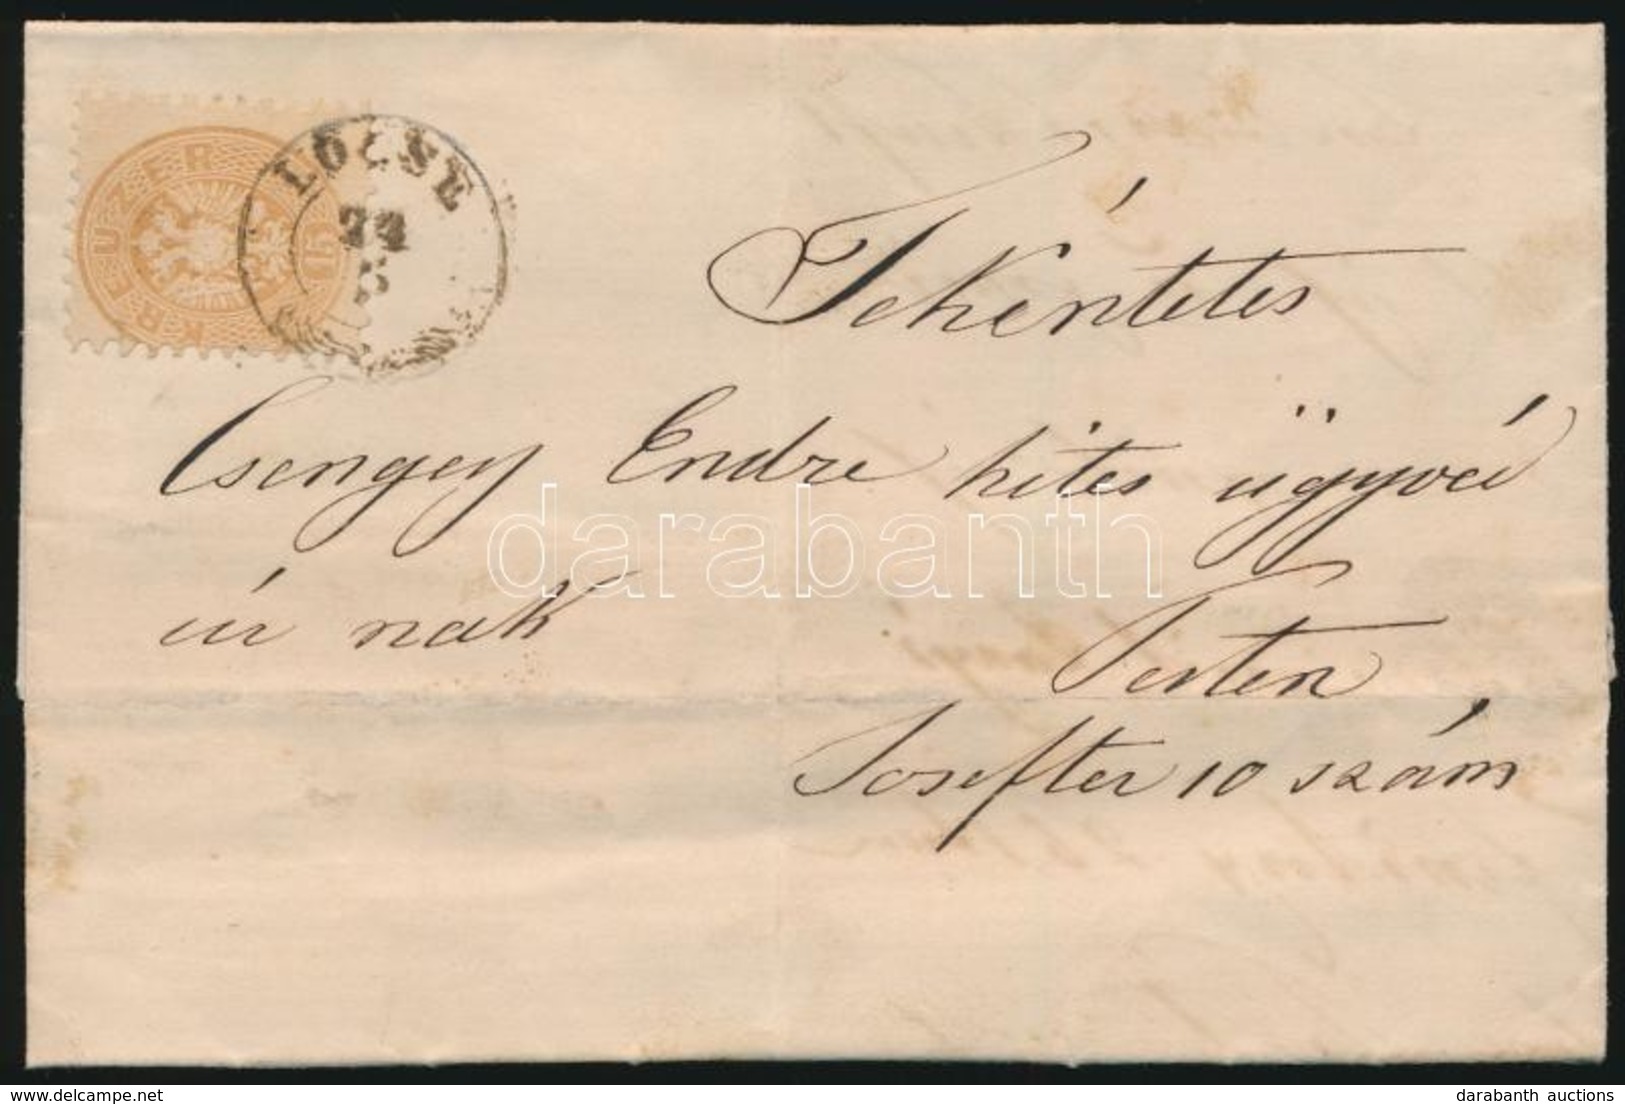 KREUZER
15
LŐCSE
24
5
Tekéntetes
Csengey Endre hites ügyvéd
úr nak
Pesten
Josefter 10 szám
darabanth
delcampe.net
darabanth auctions